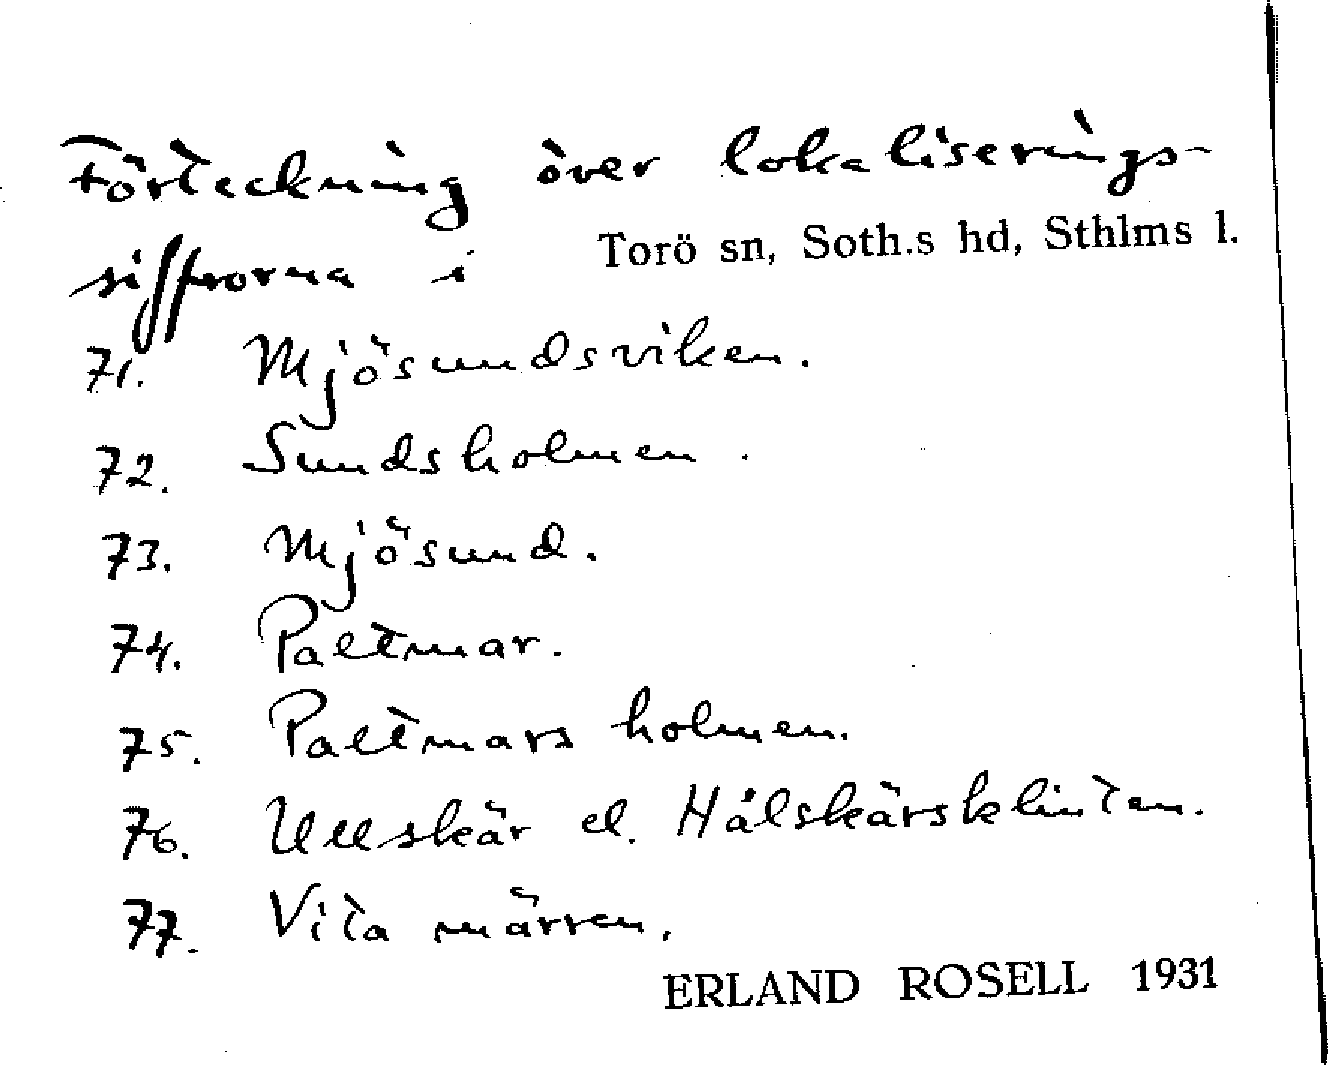 Förteckning över lokaliserings-
siffrorna i Torö sn, Soth.s hd, Sthlms l.
71. Mjösundsviken.
72. Sundsholmen.
73. Mjösund.
74. Paltmar.
75. Paltmars holmen.
76. Ullskär el. Hålskärsklinten.
77. Vita märren.
ERLAND ROSELL 1931